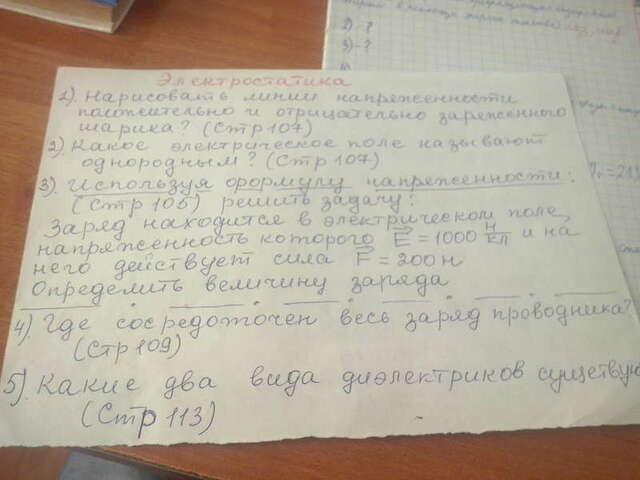 Электростатика
1). Нарисовать линии напряженности
положительно и отрицательно заряженного
шарика? (Стр 107)
2). Какое электрическое поле называют
однородным? (Стр 107)
3). Используя формулу напряженности:
(Стр 105) решить задачу:
Заряд находится в электрическом поле,
напряженность которого E = 1000 Н/Кл и на
него действует сила F = 200 н
Определить величину заряда
4) Где сосредоточен весь заряд проводника?
(Стр 109)
5). Какие два вида диэлектриков существую
(Стр 113)
2) - ?
3) - ?